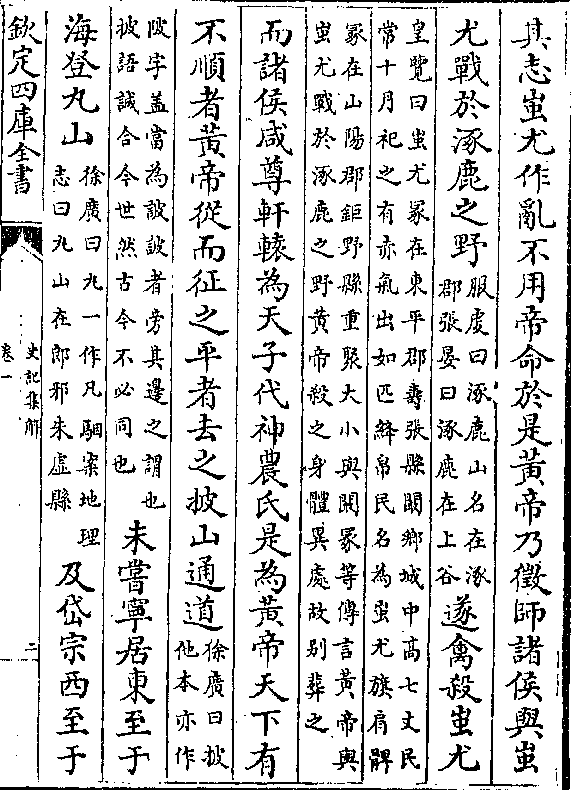 其志蚩尤作亂不用帝命於是黃帝乃徵師諸侯與蚩
尤戰於涿鹿之野
服虔曰涿鹿山名在涿
郡張晏曰涿鹿在上谷
遂禽殺蚩尤
皇覽曰蚩尤冢在東平郡壽張縣闞鄉城中高七丈民
常十月祀之有赤氣出如匹絳帛民名為蚩尤旗肩髀
冢在山陽郡鉅野縣重聚大小與闞冢等傳言黃帝與
蚩尤戰於涿鹿之野黃帝殺之身體異處故别葬之
而諸侯咸尊軒轅為天子代神農氏是為黃帝天下有
不順者黃帝從而征之平者去之披山通道
徐廣曰披
他本亦作
陂字蓋當為詖詖者旁其邊之謂也
披語誠合今世然古今不必同也
未嘗寧居東至于
海登丸山
徐廣曰丸一作凡駰案地理
志曰丸山在郎邪朱虛縣
及岱宗西至于
欽定四庫全書
史記集解
卷一
二